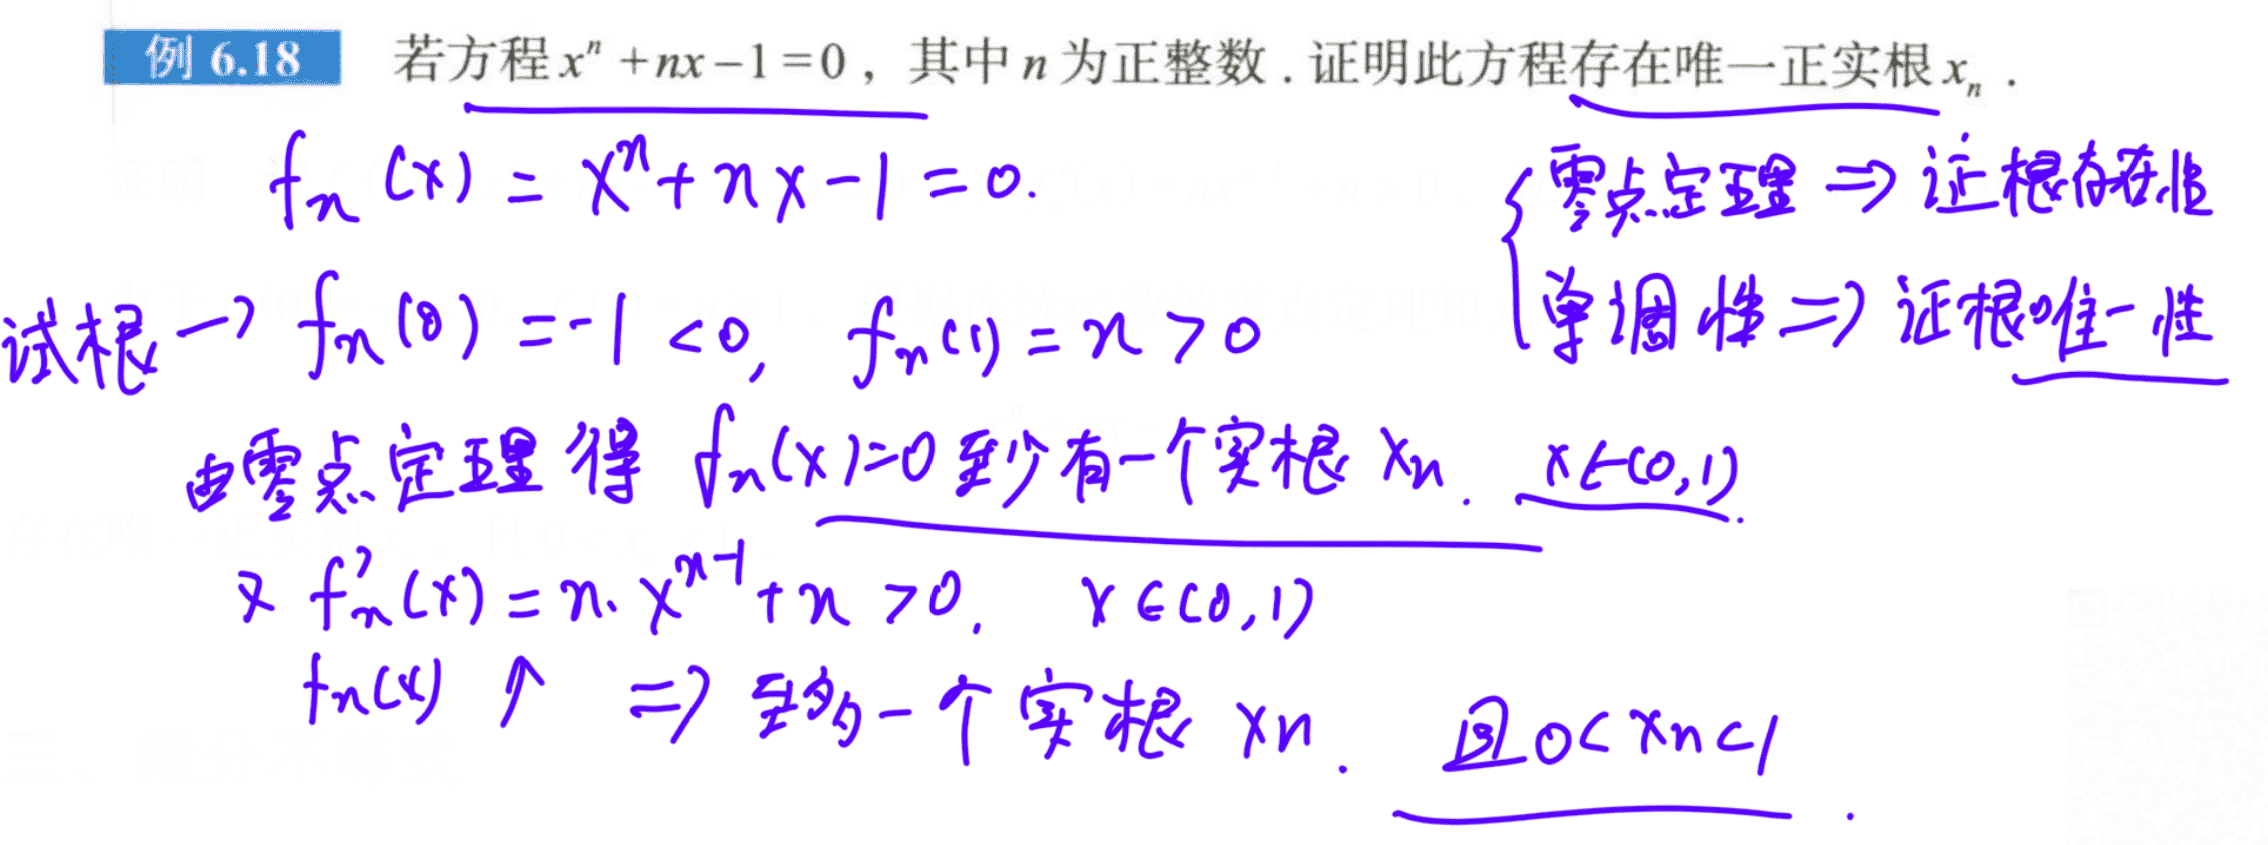 例 6.18 若方程 xⁿ + nx − 1 = 0 , 其中 n 为正整数 . 证明此方程存在唯一正实根 xₙ .
fₙ(x) = xⁿ + nx − 1 = 0.
{ 零点定理 ⇒ 证根存在性
单调性 ⇒ 证根唯一性
试根 → fₙ(0) = −1 < 0, fₙ(1) = n > 0
由零点定理得 fₙ(x) = 0 至少有一个实根 xₙ. x∈(0,1).
又 fₙ'(x) = n·xⁿ⁻¹ + n > 0. x∈(0,1)
fₙ(x) ↑ ⇒ 至多一个实根 xₙ. 且 0 < xₙ < 1 .